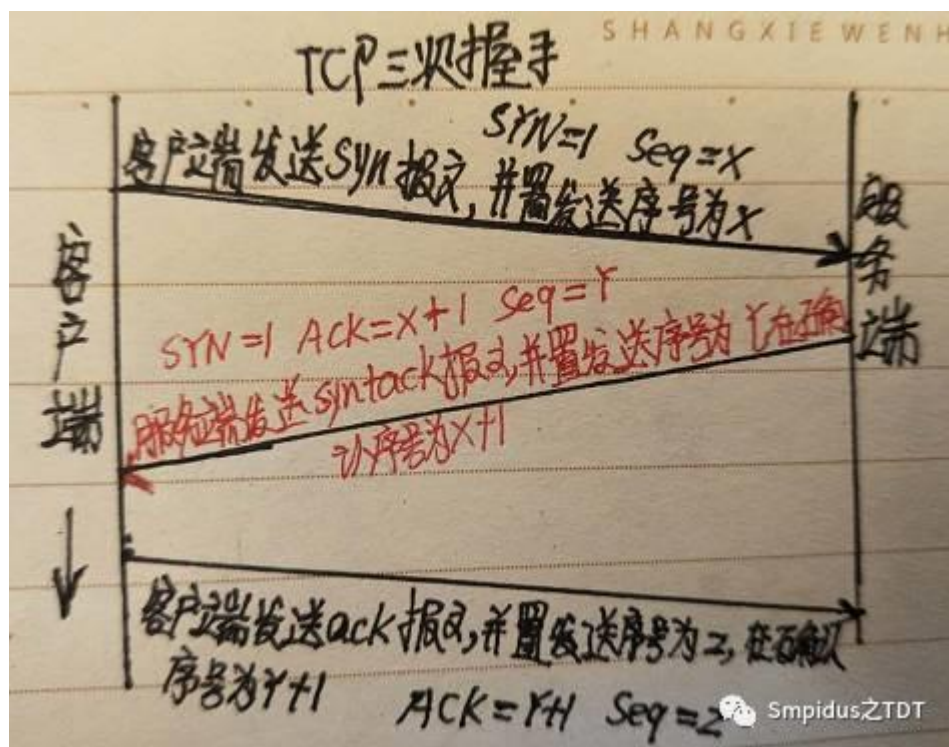 SHANGXIEWENH
TCP三次握手
SYN=1 Seq=X
客户端发送Syn报文,并置发送序号为X
客户端
服务端
SYN=1 ACK=X+1 Seq=Y
服务端发送syn+ack报文,并置发送序号为Y,在确
认序号为X+1
客户端发送ack报文,并置发送序号为Z,在确认
序号为Y+1
ACK=Y+1 Seq=Z
Smpidus之TDT